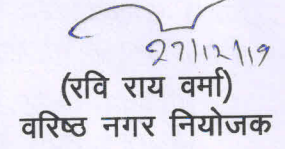 27/12/19
(रवि राय वर्मा)
वरिष्ठ नगर नियोजक